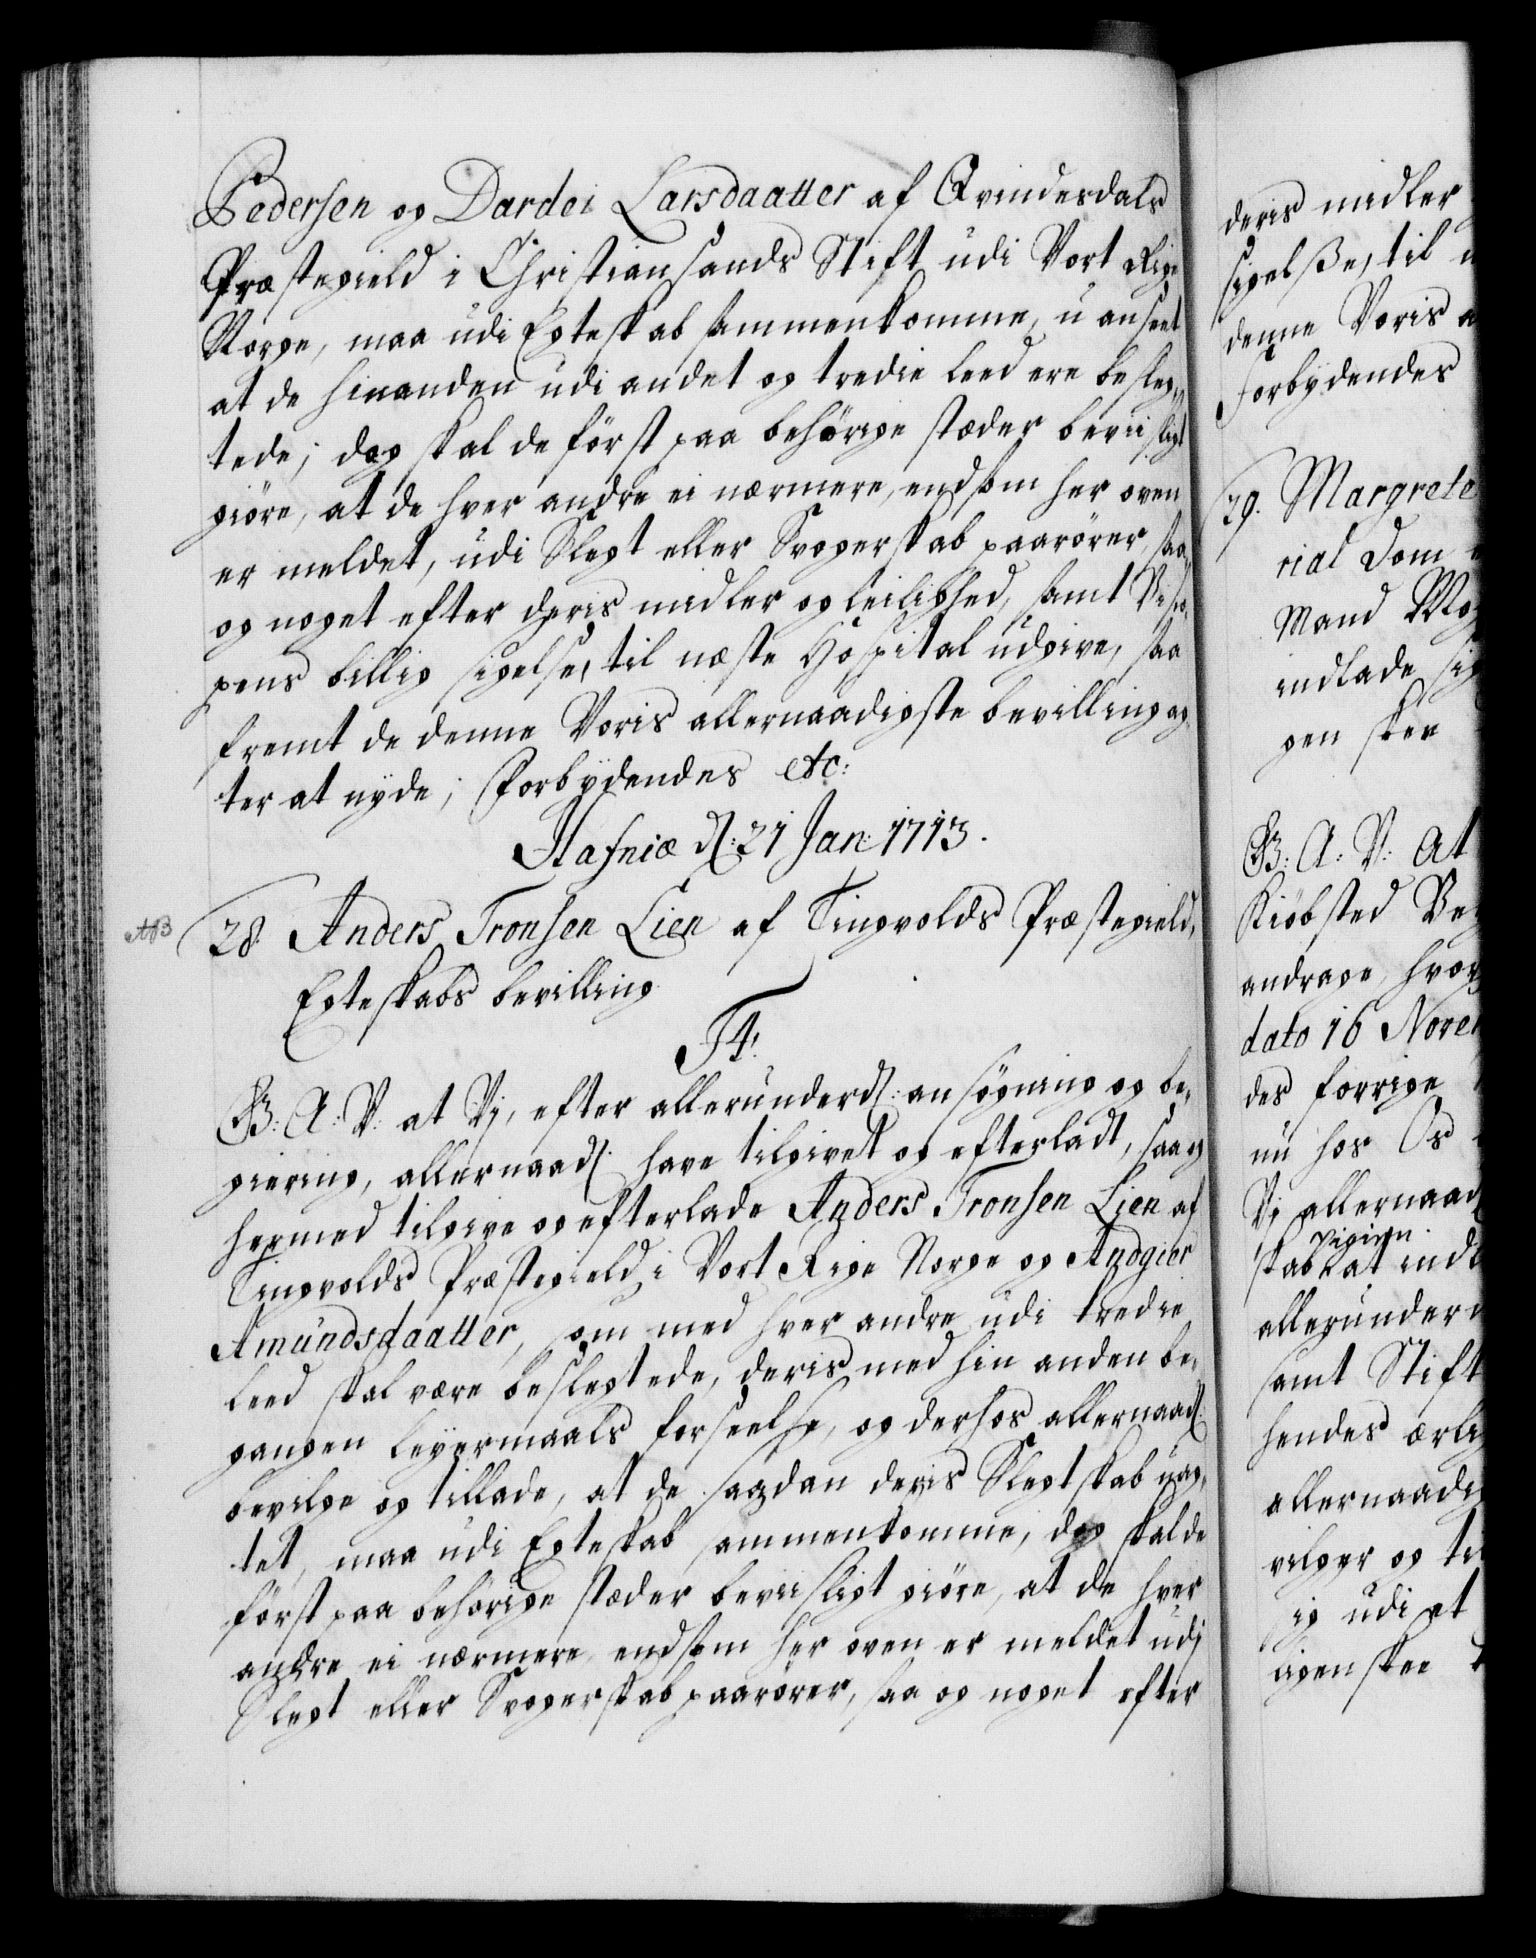 Pedersen og Dardei Larsdaatter af Qvindesdals
Præstegield i Christiansands Stift udi Vort Rige
Norge, maa udi Egteskab sammenkomme, u anseet
at de hinanden udi andet og tredie leed ere besleg„
tede; dog skal de först paa behörige stæder beviisligt
giöre, at de hver andre ei nærmere, end som her oven
er meldet, udi Slegt eller Svogerskab paarörer, saa
og noget efter deris midler og leilighed, samt Bisco„
pens billig sigelse, til næste Hospital udgive, saa
fremt de denne Voris allernaadigste bevilling ag„
ter at nyde; Forbydendes etc:
Hafniæ d: 21 Jan: 1713.
NB
28. Anders Tronsen Lien af Tingvolds Præstegield,
Egteskabs bevilling
F4:
G: A: V: at Vj, efter allerunderd: ansøgning og be„
giering, allernaad: have tilgivet og efterladt, saa og
hermed tilgive og efterlade Anders Tronsen Lien af
Tingvolds Præstegield i Vort Rige Norge og Andgier
Amundsdaatter, som med hver andre udi tredie
leed skal være beslegtede, deris med hin anden be„
gangen leyermaals forseelse, og derhos allernaad:
bevilge og tillade, at de saadan deris Slegtskab uag„
tet, maa udi Egteskab sammenkomme, dog skal de
först paa behörige stæder beviisligt giöre, at de hver
andre ei nærmere end som her oven er meldet udi
Slegt eller Svogerskab paarörer, saa og noget efter
deris midler
sigelße, til
denne Voris
Forbydendes
29. Margrete
rial Dom
Mand
indlade sig
gen skee
G: A: V: At
Kiöbsted
andrage, hvor
dato 16 Nove
des forrige
nu hos Os
Vj allernaad
pigien
skab at indl
allerunder
samt Stift
hendes ærlig
allernaadi
vilger og ti
ig udi et
ligen skee